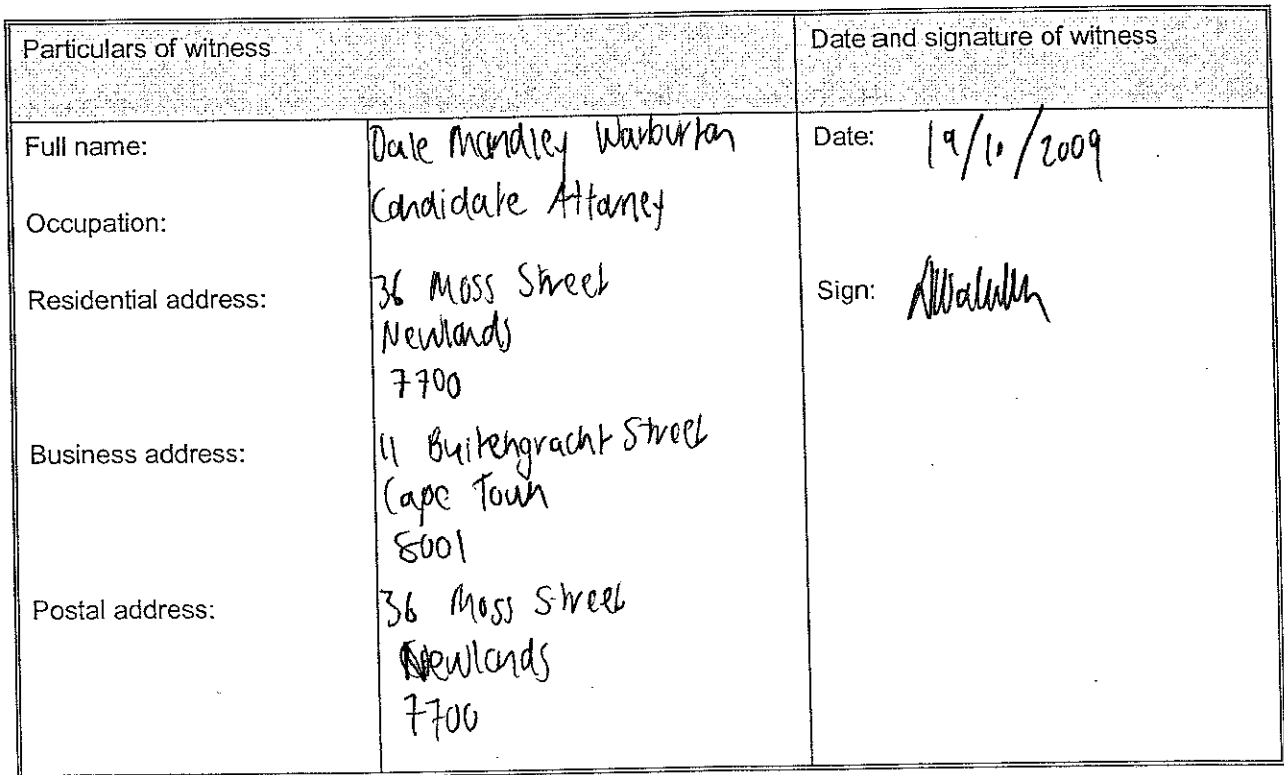 Particulars of witness
Date and signature of witness
Full name: Dale Mandley Warburton
Date: 19/10/2009
Occupation: Candidate Attorney
Residential address: 36 Moss Street
Newlands
7700
Sign:
Business address: 11 Buitengracht Street
Cape Town
8001
Postal address: 36 Moss Street
Newlands
7700